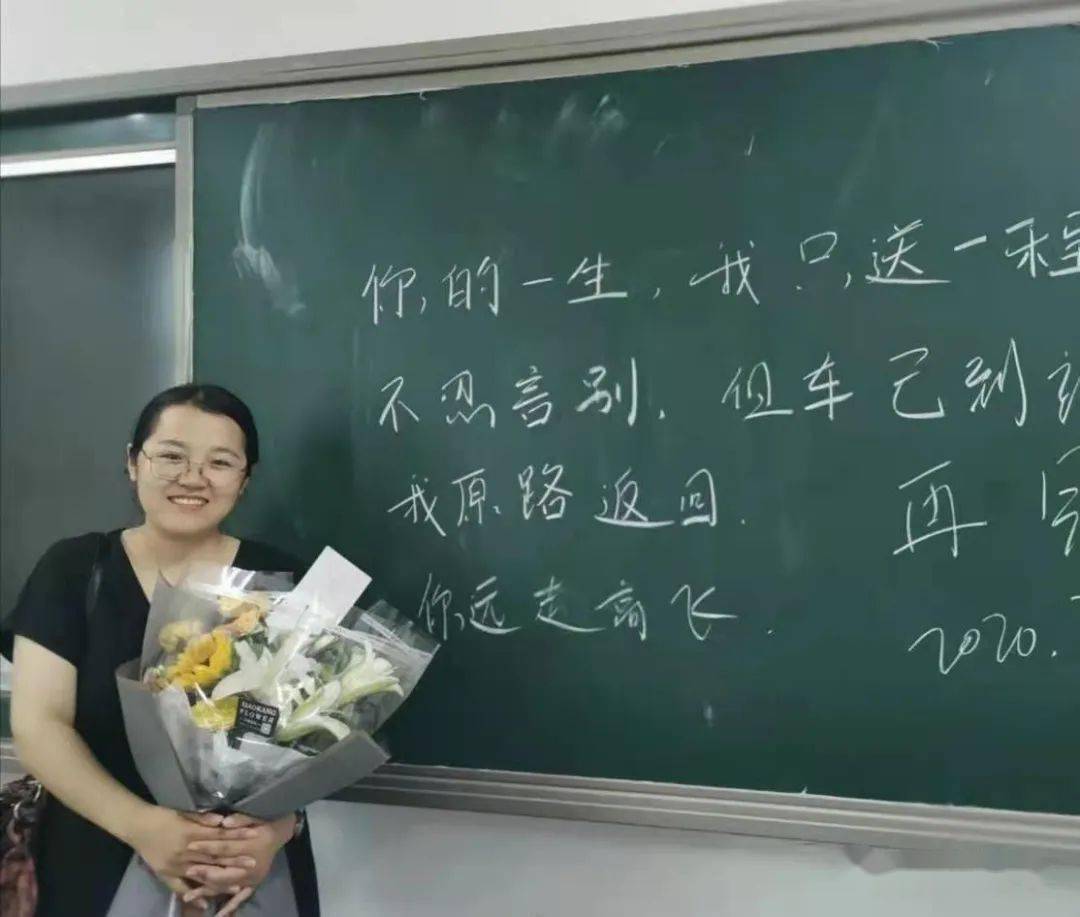 你的一生,我只送一程
不忍言别.但车已到
我原路返回. 再
你远走高飞.
2020.
XIAOKANG
FLOWER